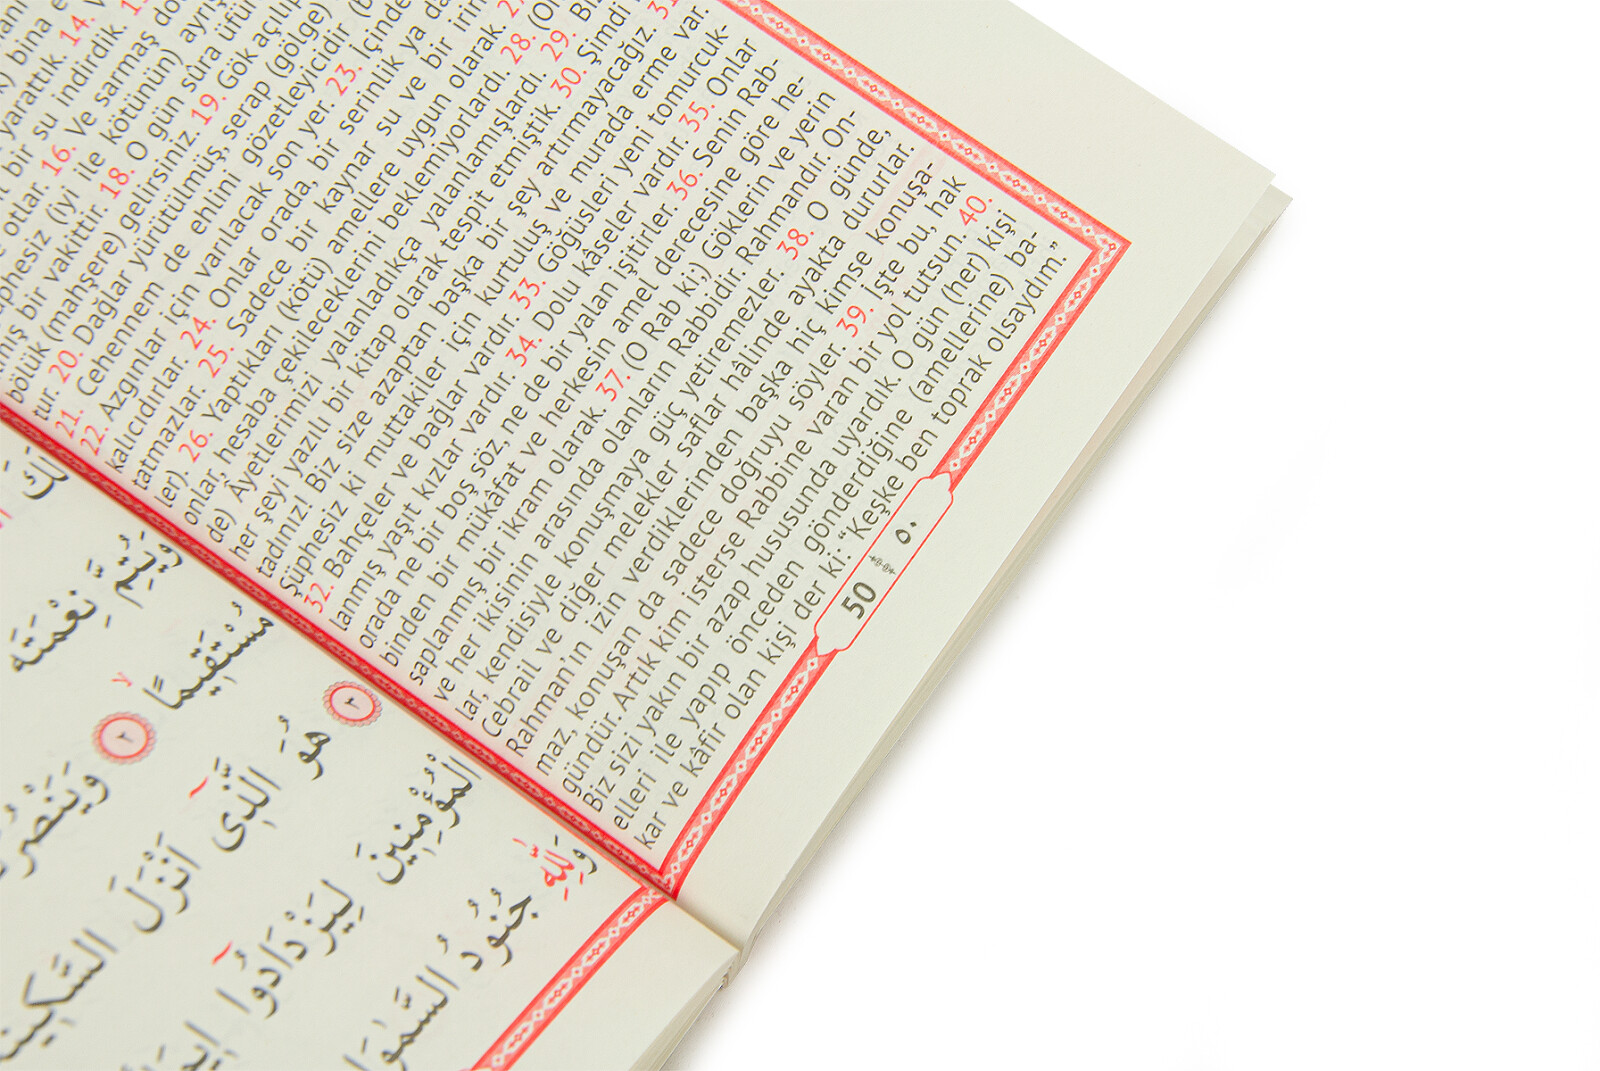 yarattık. 14.
bir su indirdik.
otlar. 16. Ve sarmaş
(iyi ile kötünün)
bir vakittir. 18. O gün sûra
bölük (mahşere) gelirsiniz. 19. Gök
tur. 20. Dağlar yürütülmüş, serap (gölge)
21. Cehennem de ehlini gözetleyicidir
22. Azgınlar için varılacak son yer. 23. İçinde
kalıcıdırlar. 24. Onlar orada, bir serinlik ya da
tatmazlar. 25. Sadece bir kaynar su ve bir irin
ler). 26. Yaptıkları (kötü) amellere uygun olarak.
onlar, hesaba çekileceklerini beklemiyorlardı. 28.
de) Âyetlerimizi yalanladıkça yalanlamışlardı. 29.
her şeyi yazılı bir kitap olarak tespit etmiştik. 30. Şimdi
tadınız! Biz size azaptan başka bir şey artırmayacağız.
Şüphesiz ki muttakiler için kurtuluş ve murada erme var
32. Bahçeler ve bağlar vardır. 33. Göğüsleri yeni tomurcuk-
lanmış yaşıt kızlar vardır. 34. Dolu kâseler vardır. 35. Onlar
orada ne bir boş söz, ne de bir yalan işitirler. 36. Senin Rab-
binden bir mükâfat ve herkesin amel derecesine göre he-
saplanmış bir ikram olarak. 37. (O Rab ki;) Göklerin ve yerin
ve her ikisinin arasında olanların Rabbidir. Rahmandır. On-
lar, kendisiyle konuşmaya güç yetiremezler. 38. O günde,
Cebrail ve diğer melekler saflar hâlinde ayakta dururlar.
Rahman'ın izin verdiklerinden başka hiç kimse konuşa-
maz, konuşan da sadece doğruyu söyler. 39. İşte bu, hak
gündür. Artık kim isterse Rabbine varan bir yol tutsun. 40.
Biz sizi yakın bir azap hususunda uyardık. O gün (her) kişi
elleri ile yapıp önceden gönderdiğine (amellerine) ba-
kar ve kâfir olan kişi der ki: “Keşke ben toprak olsaydım.”
50 ٥٠
لَكَ
وَيُتِمَّ نِعْمَتَهُ
مُسْتَقِيمًا ٢
هُوَ الَّذِٓى اَنْزَلَ ٣
الْمُؤْمِنِينَ لِيَزْدَادُٓوا
وَلِلّٰهِ جُنُودُ السَّمٰوَا